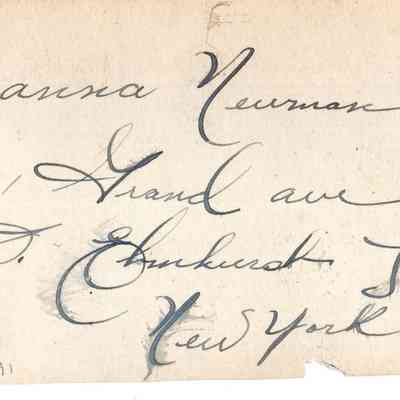 anna Newman
, Grand ave
. Elmhurst
New York
91